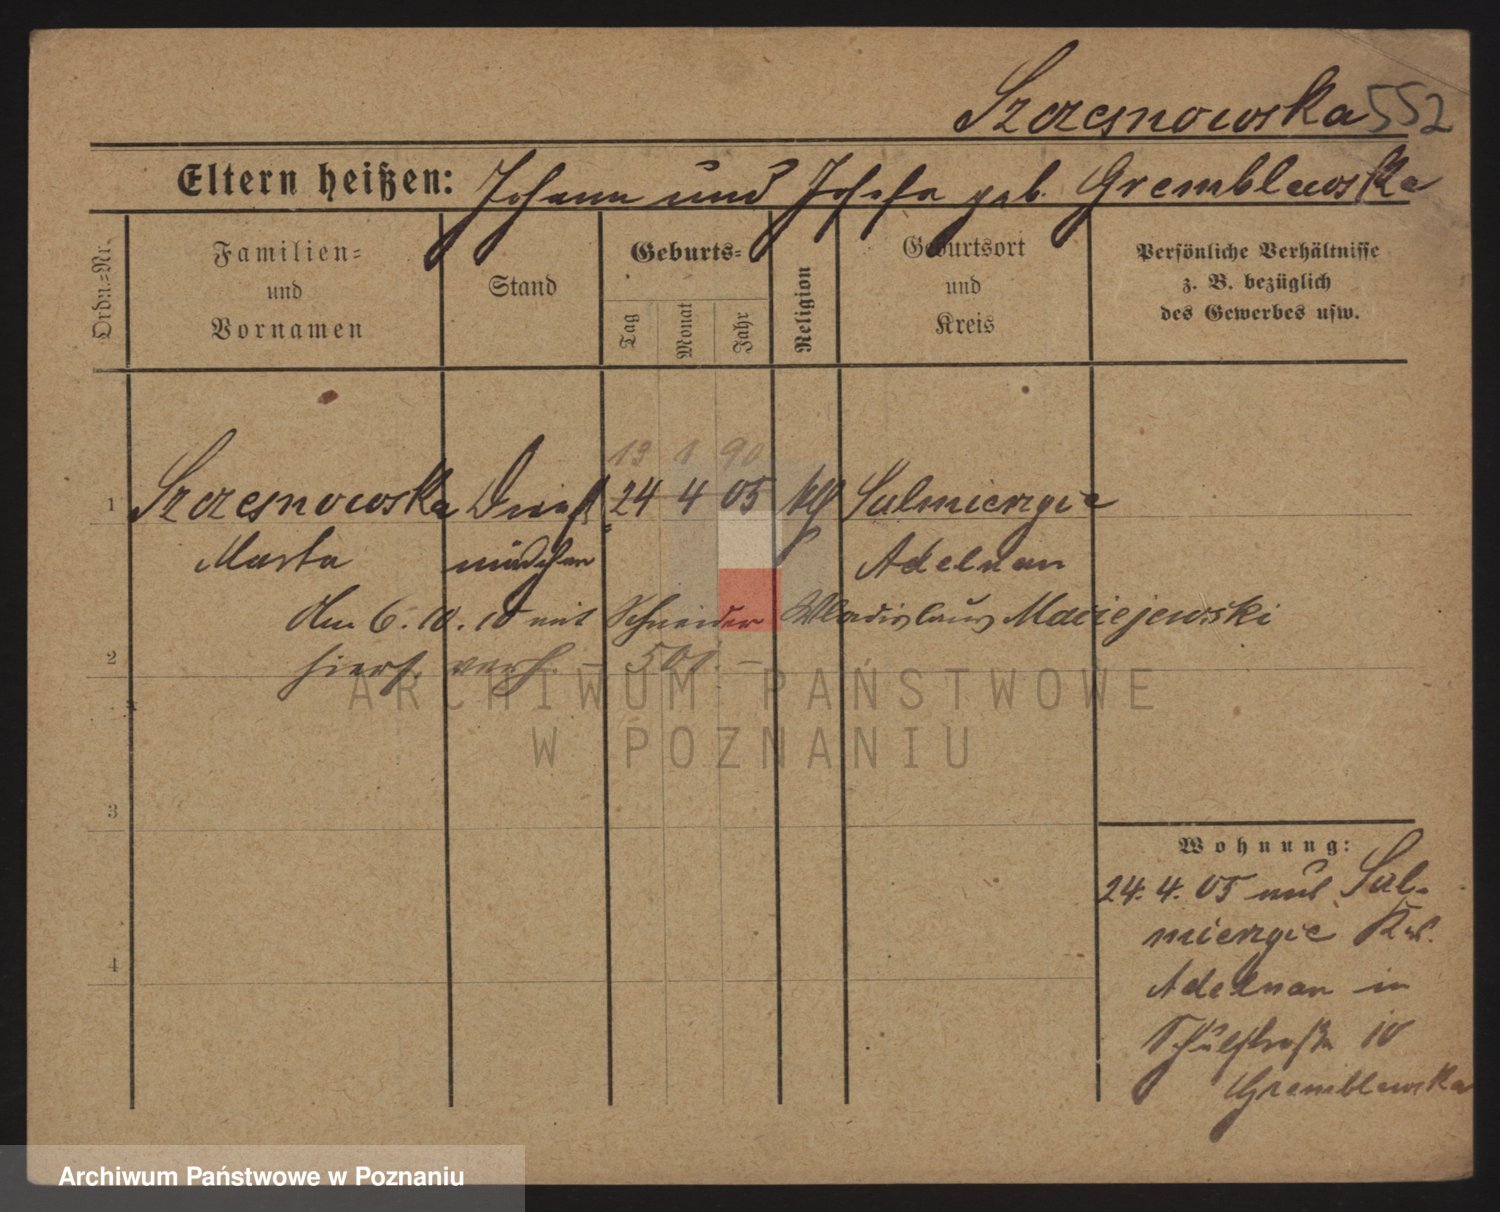 Szczesnowska 552
Eltern heißen: Johann und Josefa geb. Gremblewska
Ordn.-Nr.
Familien-
und
Vornamen
Stand
Geburts-
Tag
Monat
Jahr
Religion
Geburtsort
und
Kreis
Persönliche Verhältnisse
z. B. bezüglich
des Gewerbes usw.
13 1 90
1 Szczesnowska Dienst 24 4 05 Sulmierzyce
Marta mädchen Adelnau
Am 6. 10. 10 mit Schneider Wladislaus Maciejewski
2 hiers. verh. – 501. –
3
4
Wohnung:
24. 4. 05 aus Sul-
mierzyce Kr.
Adelnau in
Schulstraße 10
Gremblewska
ARCHIWUM PAŃSTWOWE
W POZNANIU
Archiwum Państwowe w Poznaniu